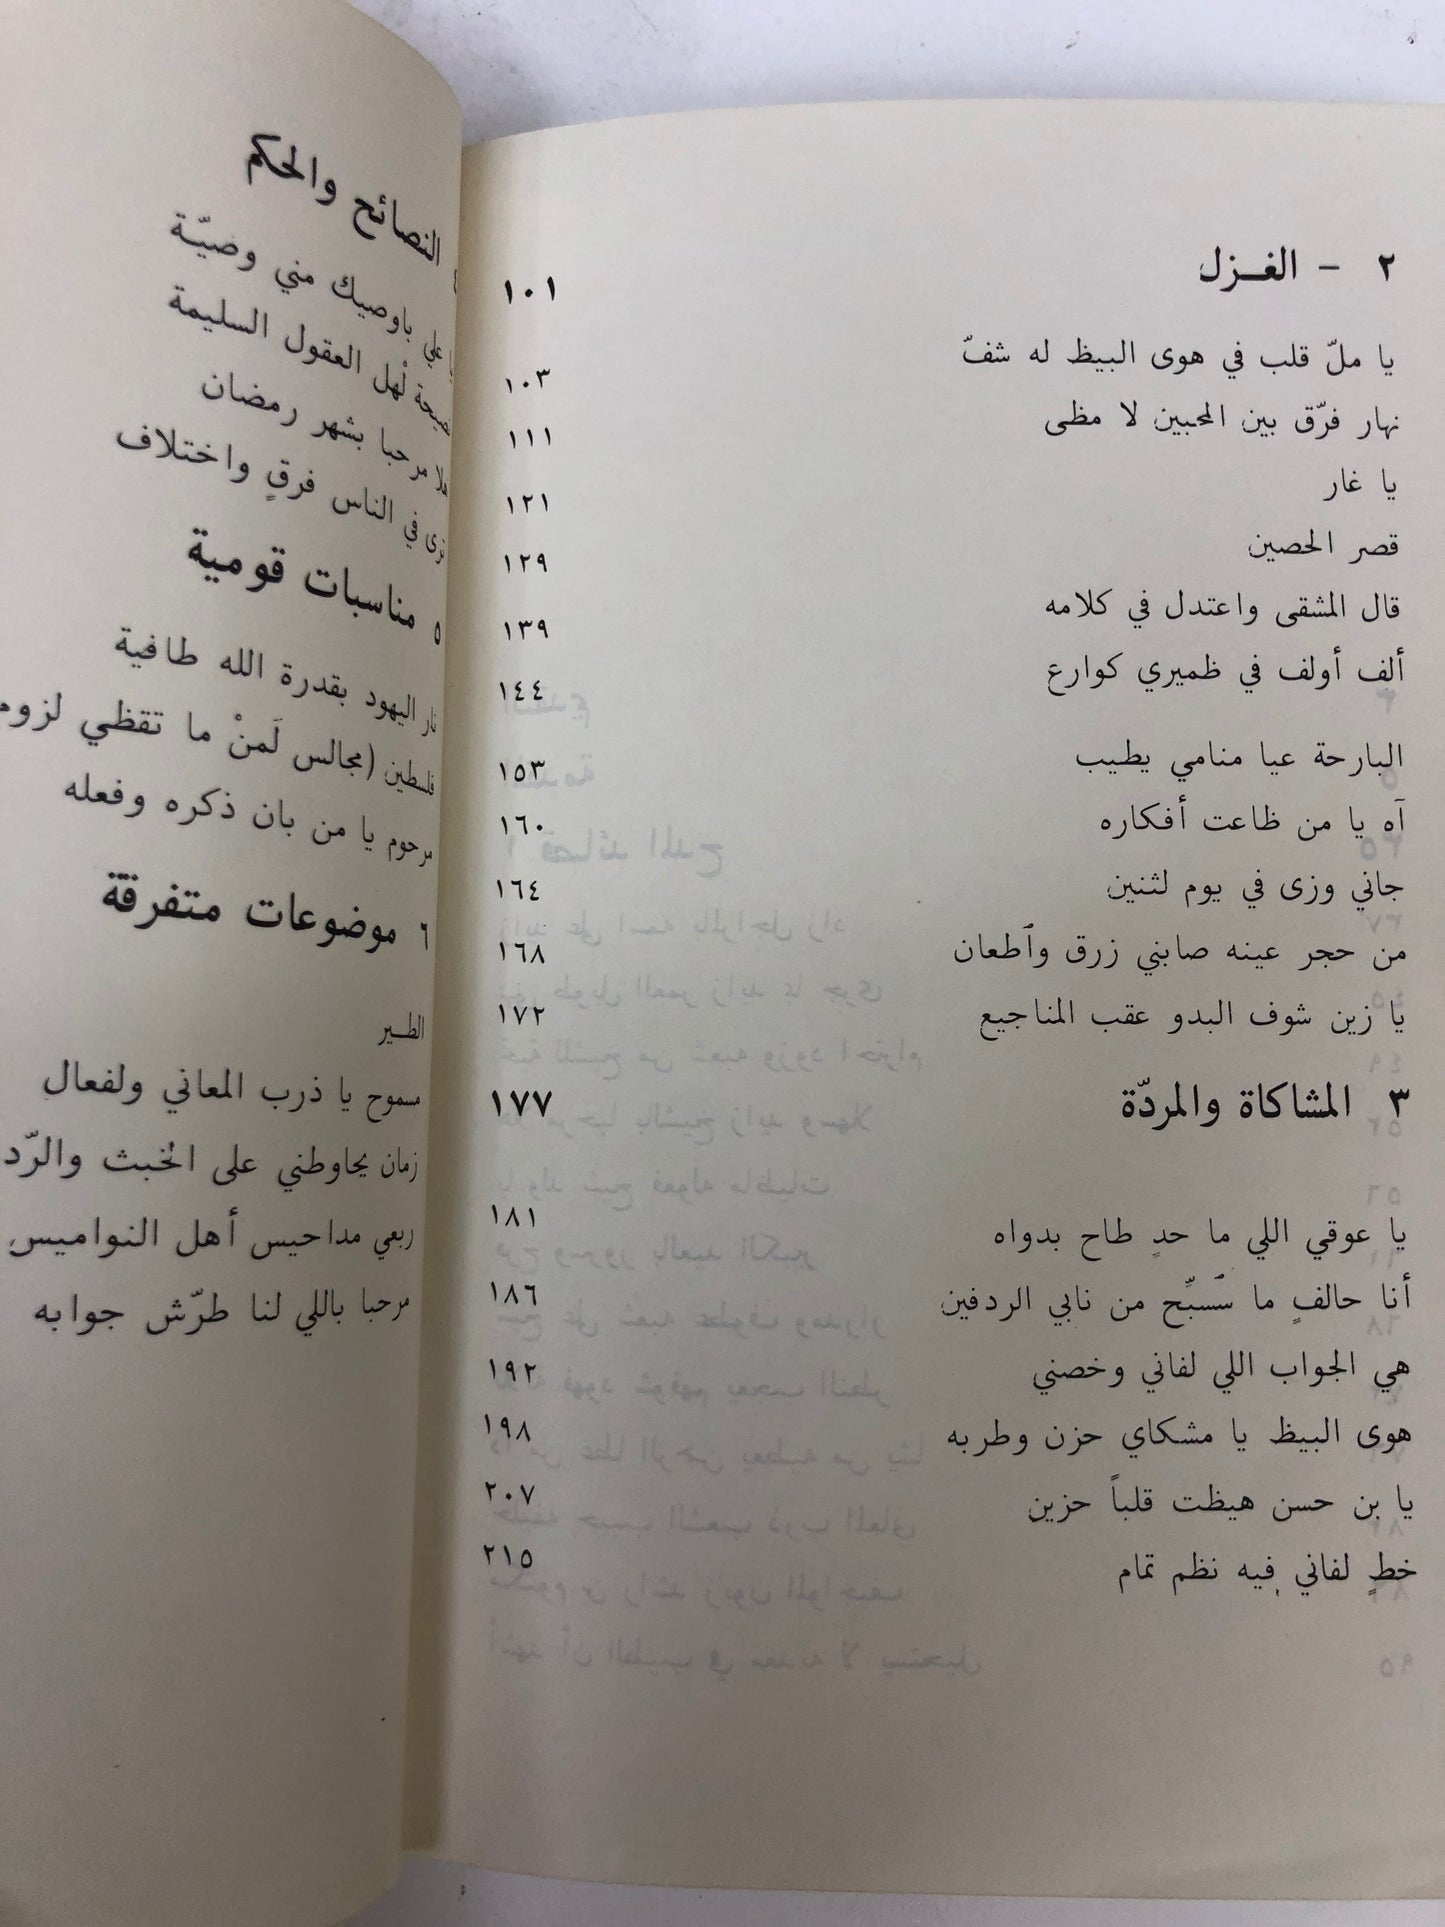 ٢ - الغـزل ١٠١
يا ملّ قلب في هوى البيظ له شفّ ١٠٣
نهار فرّق بين المحبين لا مظى ١١١
يا غار ١٢١
قصر الحصين ١٢٩
قال المشقى واعتدل في كلامه ١٣٩
ألف أولف في ظميري كوارع ١٤٤
البارحة عيا منامي يطيب ١٥٣
آه يا من ظاعت أفكاره ١٦٠
جاني وزى في يوم لثنين ١٦٤
من حجر عينه صابني زرق وٱطعان ١٦٨
يا زين شوف البدو عقب المناجيع ١٧٢
٣ المشاكاة والمردّة ١٧٧
يا عوقي اللي ما حدٍ طاح بدواه ١٨١
أنا حالفٍ ما سٓسبِّح من نابي الردفين ١٨٦
هي الجواب اللي لفاني وخصني ١٩٢
هوى البيظ يا مشكاي حزن وطربه ١٩٨
يا بن حسن هيظت قلباً حزين ٢٠٧
خطٍ لفاني فيه نظم تمام ٢١٥
النصائح والحكم
يا علي باوصيك مني وصيّـة
لْهل العقول السليمة
مرحبا بشهر رمضان
ترى في الناس فرقٍ واختلاف
٥ مناسبات قومية
نار اليهود بقدرة الله طافية
فلسطين (مجالس لَمنْ ما تقظي لزوم
مرحوم يا من بان ذكره وفعله
٦ موضوعات متفرقة
الطـير
مسموح يا ذرب المعاني ولفعال
زمان يحاوطني على الخبث والرّد
ربعي مداحيس أهل النواميس
مرحبا باللي لنا طرّش جوابه